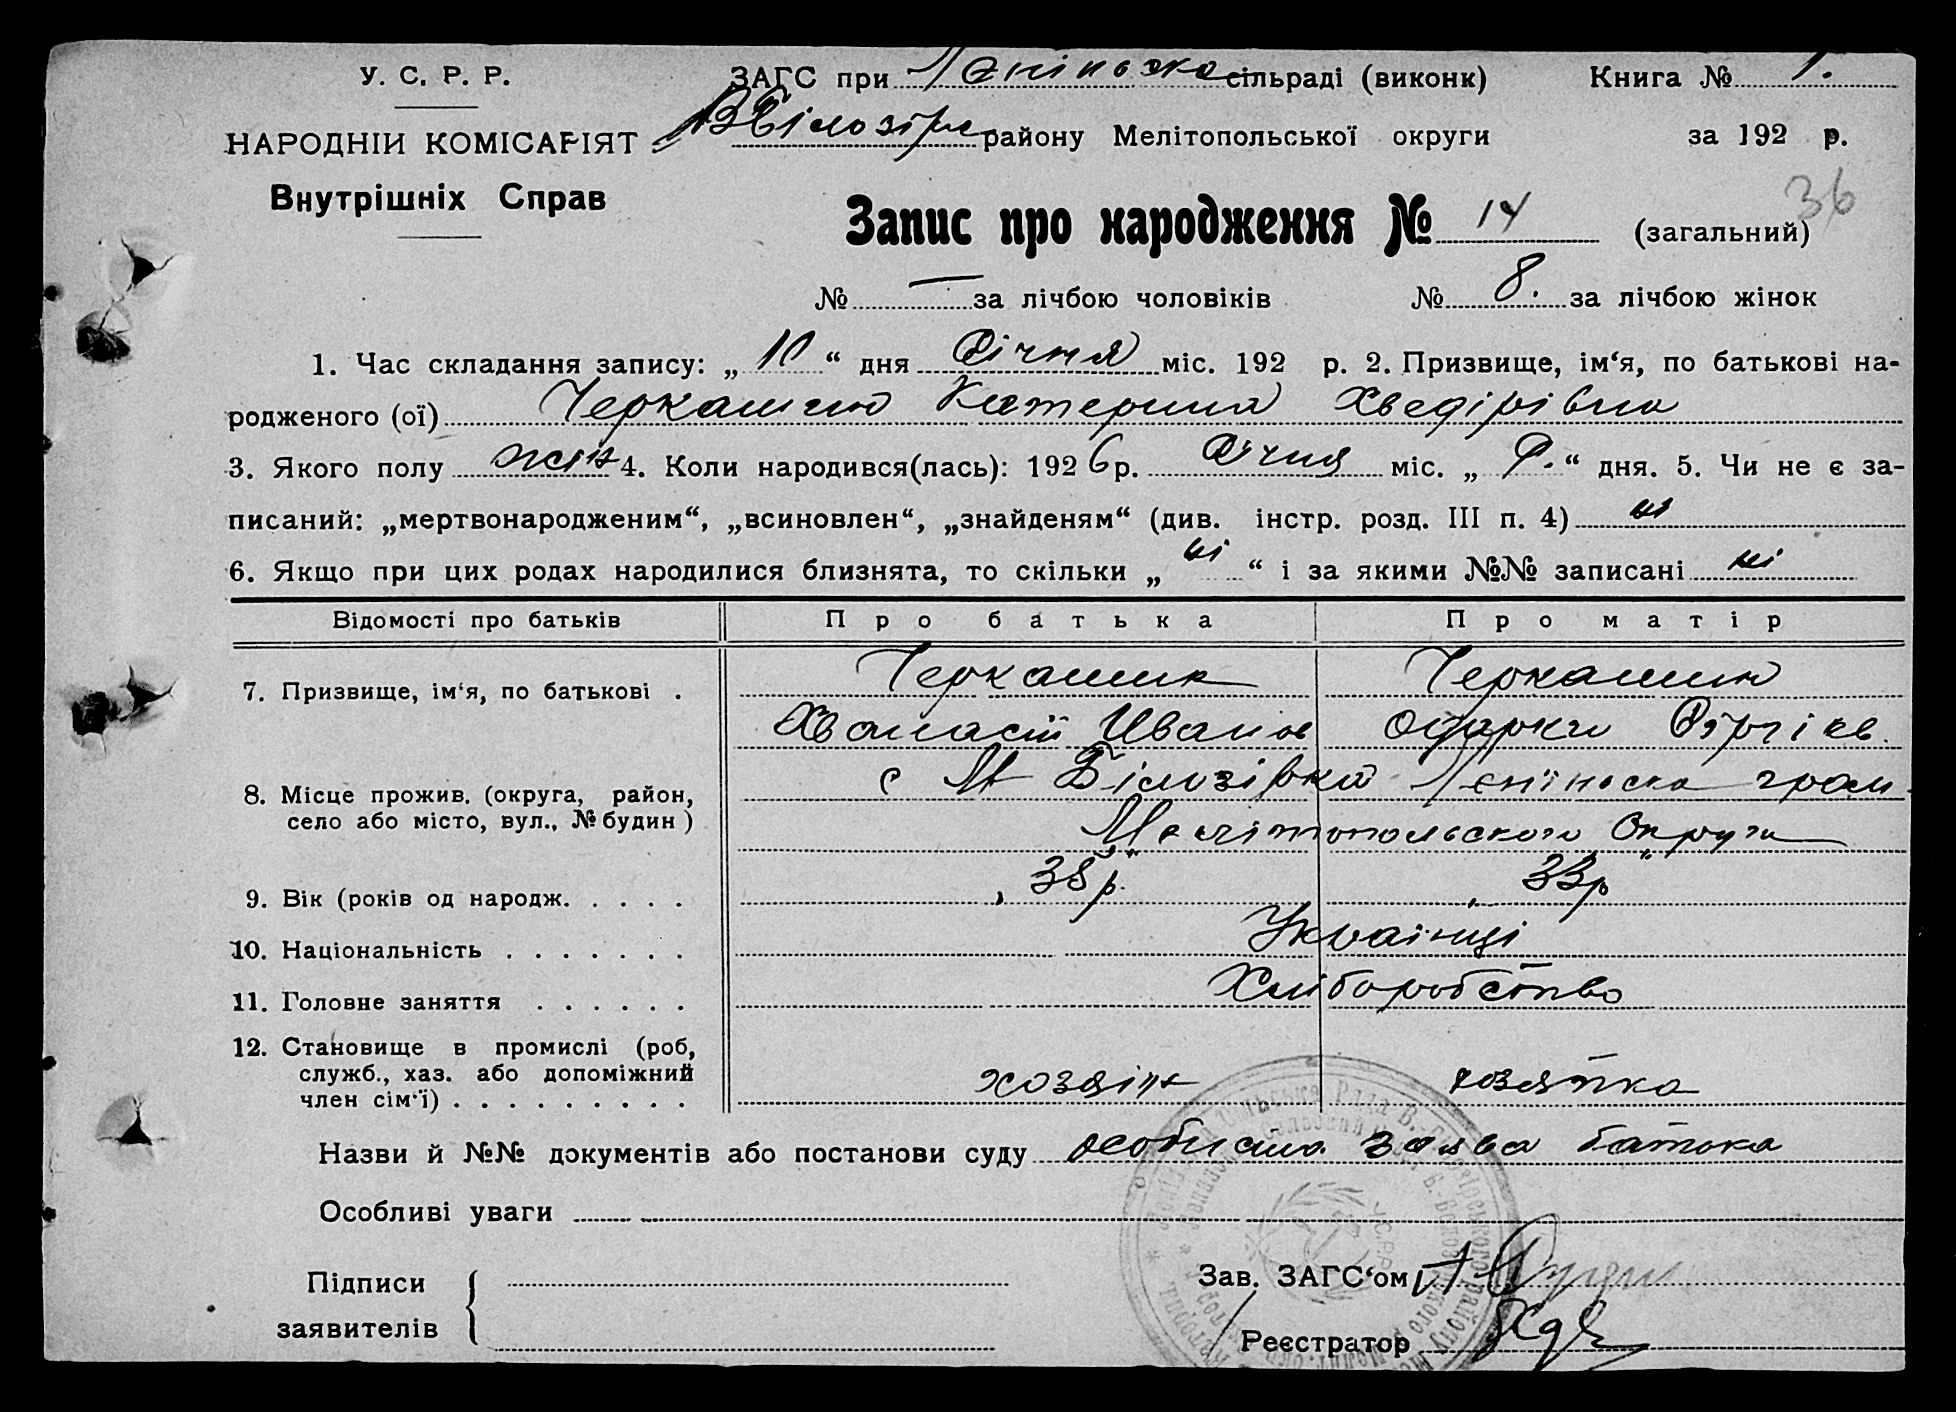 У. С. Р. Р.
НАРОДНІЙ КОМІСАРІЯТ
Внутрішніх Справ
ЗАГС при Леніньска сільраді (виконк) Книга № 1.
В Білозірс району Мелітопольської округи за 192 р.
36
Запис про народження № 14 (загальний)
№ — за лічбою чоловіків № 8. за лічбою жінок
1. Час складання запису: „ 10 “ дня Січня міс. 192 р. 2. Призвище, ім‘я, по батькові на-
родженого (ої) Черкашин Катерина Хведірівна
3. Якого полу жін 4. Коли народився(лась): 1926 р. Січня міс. „ 9. “ дня. 5. Чи не є за-
писаний: „мертвонародженим“, „всиновлен“, „знайденям“ (див. інстр. розд. III п. 4) ні
6. Якщо при цих родах народилися близнята, то скільки „ ні “ і за якими №№ записані ні
Відомості про батьків Про батька Про матір
7. Призвище, ім‘я, по батькові . Черкашин Черкашин
Иванов Одарка
8. Місце прожив. (округа, район, село або місто, вул., № будин) с М Білозірка Леніньска гром.
Мелітопольского Округи
9. Вік (років од народж. . . . . 38 р. 33 р
10. Національність . . . . . . . Українці
11. Головне заняття . . . . . . Хліборобство
12. Становище в промислі (роб, служб., хаз. або допоміжний член сім‘ї) . . . . . . . . . хозяін хозяйка
Назви й №№ документів або постанови суду особиста заява батька
Особливі уваги
Підписи
заявителів
Зав. ЗАГС‘ом
Реєстратор
УСРР